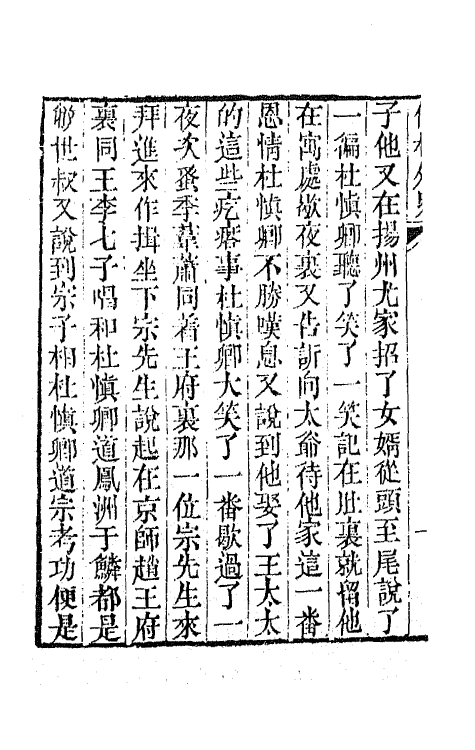 子他又在揚州尤家招了女婿從頭至尾說了
一徧杜愼卿聽了笑了一笑記在肚裏就留他
在寓處歇夜裏又告訴向太爺待他家這一番
恩情杜愼卿不勝嘆息又說到他娶了王太太
的這些疙瘩事杜愼卿大笑了一番歇過了一
夜次蚤季葦蕭同着王府裏那一位宗先生來
拜進來作揖坐下宗先生說起在京師趙王府
裏同王李七子唱和杜愼卿道鳳洲于鱗都是
敝世叔又說到宗子相杜愼卿道宗考功便是